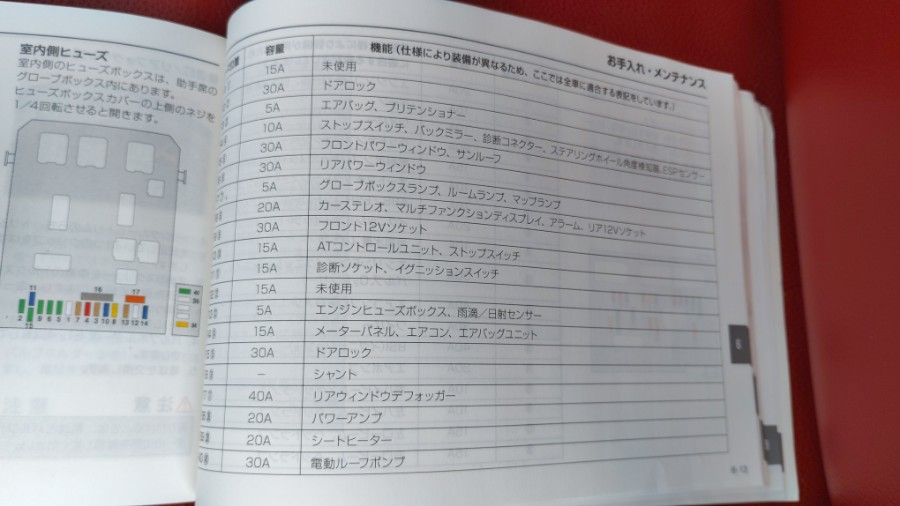 室内側ヒューズ
室内側のヒューズボックスは、助手席の
グローブボックス内にあります。
ヒューズボックスカバーの上側のネジを
1/4回転させると開きます。
11 16 17
2 8 9 6 5 1 7 4 3 10 8 13 12 14
15
40
39
38
お手入れ・メンテナンス
容量 機能(仕様により装備が異なるため、ここでは全車に適合する表記をしています。)
15A 未使用
30A ドアロック
5A エアバッグ、プリテンショナー
10A ストップスイッチ、バックミラー、診断コネクター、ステアリングホイール角度検知器、ESPセンサー
30A フロントパワーウィンドウ、サンルーフ
30A リアパワーウィンドウ
5A グローブボックスランプ、ルームランプ、マップランプ
20A カーステレオ、マルチファンクションディスプレイ、アラーム、リア12Vソケット
30A フロント12Vソケット
15A ATコントロールユニット、ストップスイッチ
15A 診断ソケット、イグニッションスイッチ
15A 未使用
5A エンジンヒューズボックス、雨滴/日射センサー
15A メーターパネル、エアコン、エアバッグユニット
30A ドアロック
− シャント
40A リアウィンドウデフォッガー
20A パワーアンプ
20A シートヒーター
30A 電動ルーフポンプ
6
6-13